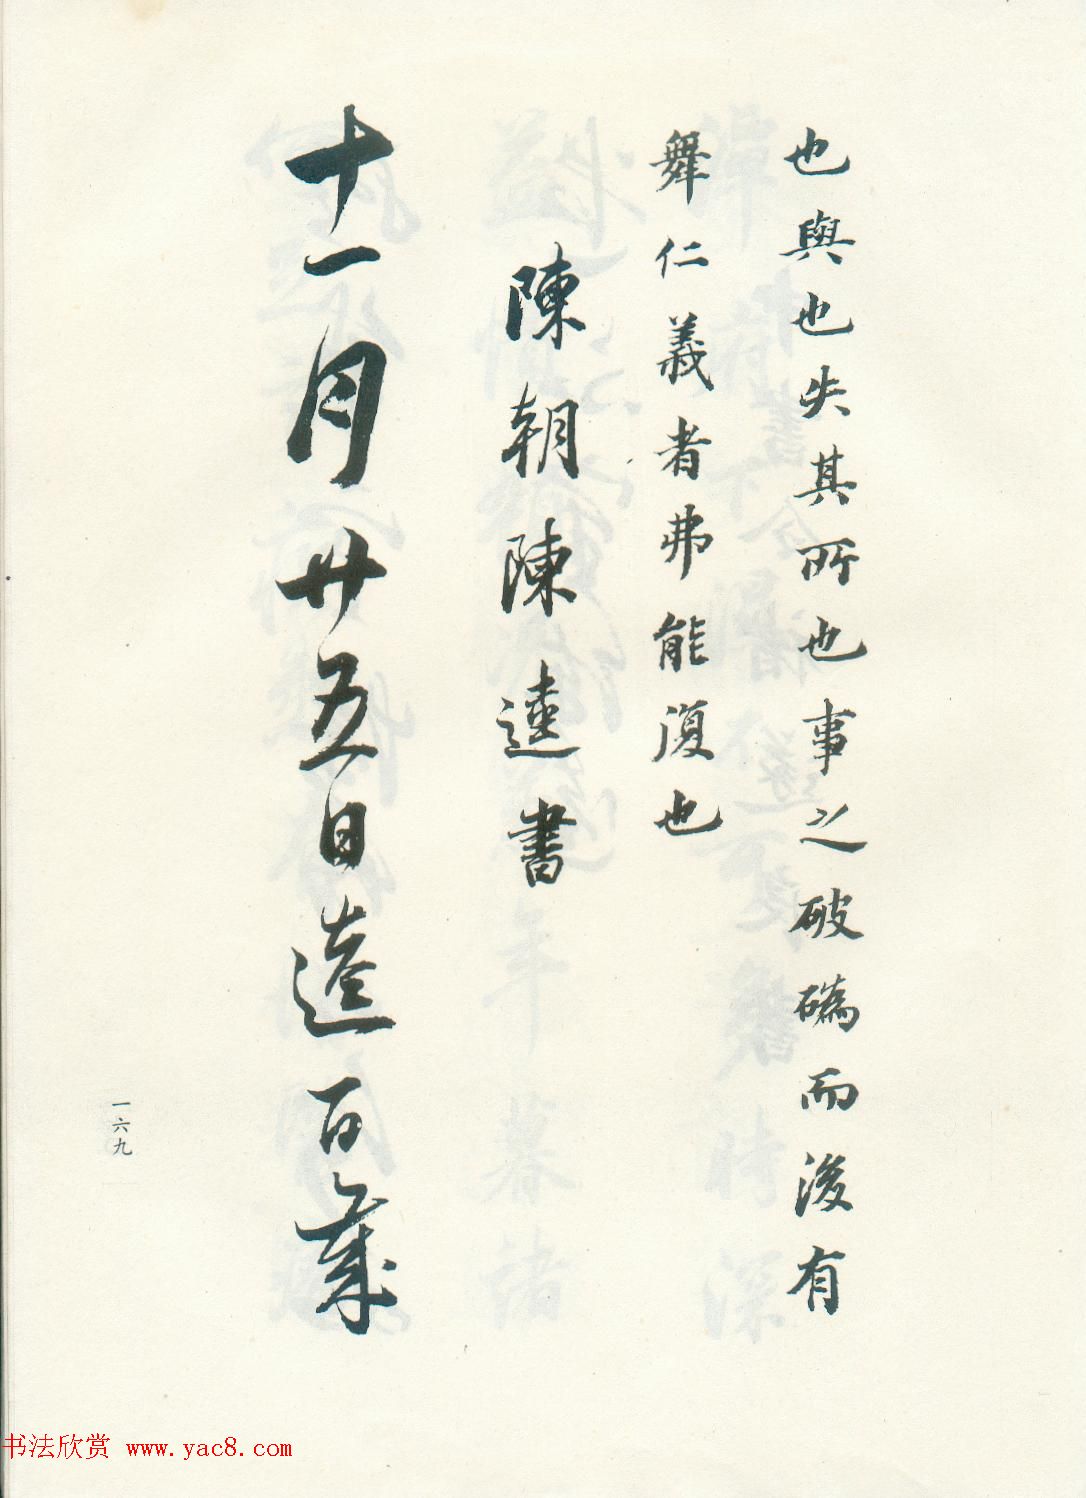 也與也失其所也事之破䃣而後有
舞仁義者弗能復也
陳朝陳逵書
十一月廿五日逵百
一六九
书法欣赏 www.yac8.com